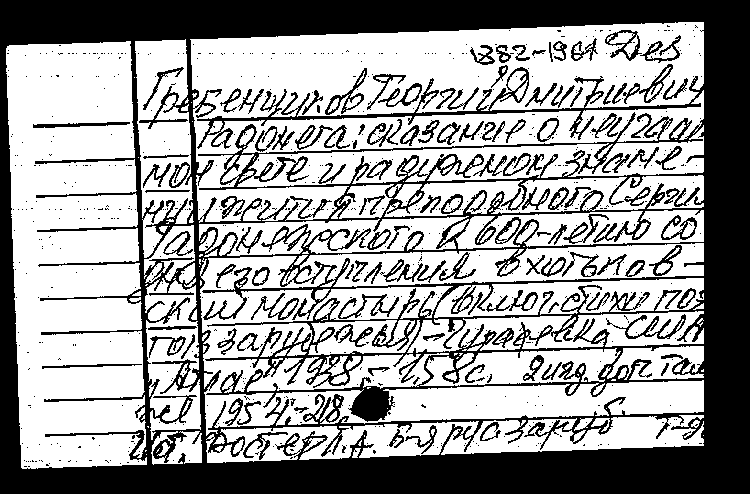 1882-1964 Des
Гребенщиков Георгий Дмитриевич
Радонега: сказание о неугаси
мом свете и радужном знаме-
нии жития преподобного Сергия
Радонежского К 600-летию со
дня его вступления в хотьков-
ский монастырь (включ. стихи поэ
тов зарубежья) - Чураевка США
"Алтае", 1938. - 158с. 2 изд. доп. там
же 1954. - 218.
Ист. Фостер Л.А. Б-я рус. заруб.